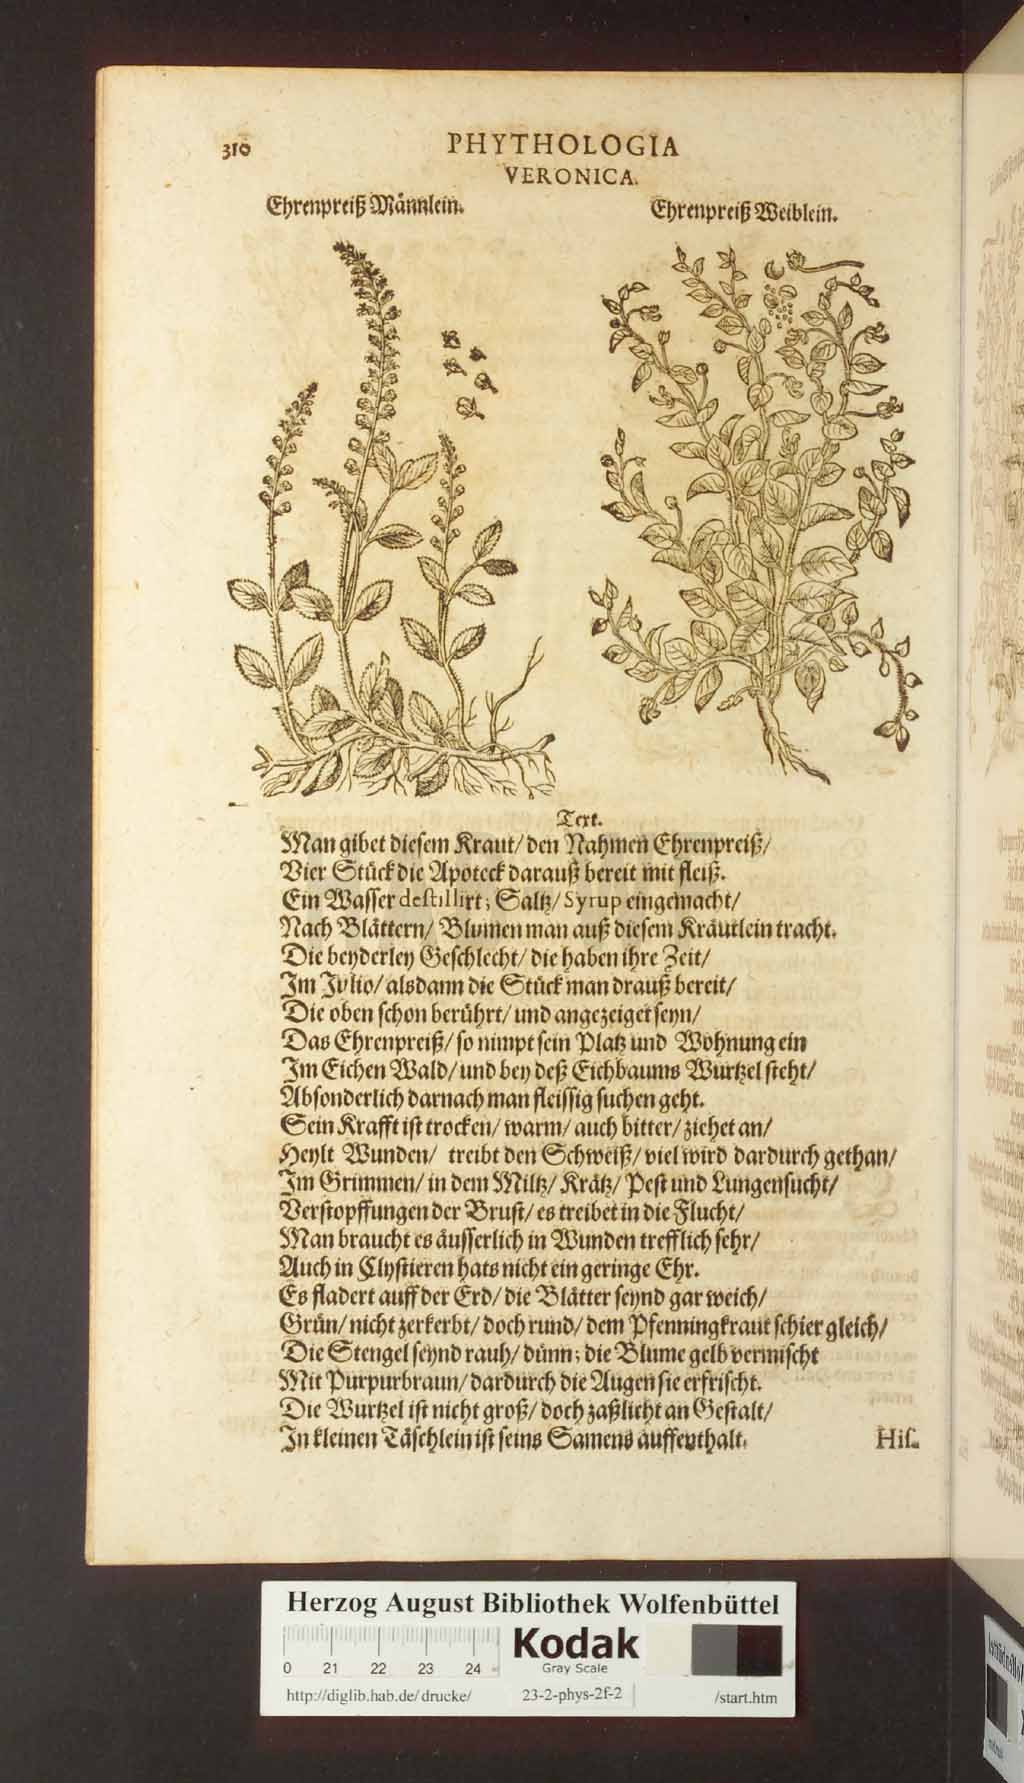 310
PHYTHOLOGIA
VERONICA.
Ehrenpreiß Männlein.
Ehrenpreiß Weiblein.
Text.
Man gibet diesem Kraut/ den Nahmen Ehrenpreiß/
Vier Stück die Apoteck darauß bereit mit fleiß.
Ein Wasser destillirt; Saltz/ Syrup eingemacht/
Nach Blättern/ Blumen man auß diesem Kräutlein tracht.
Die beyderley Geschlecht/ die haben ihre Zeit/
Im Julio/ alsdann die Stück man drauß bereit/
Die oben schon berührt/ und angezeiget seyn/
Das Ehrenpreiß/ so nimpt sein Platz und Wohnung ein
Im Eichen Wald/ und bey deß Eichbaums Wurtzel steht/
Absonderlich darnach man fleissig suchen geht.
Sein Krafft ist trocken/ warm/ auch bitter/ ziehet an/
Heylt Wunden/ treibt den Schweiß/ viel wird dardurch gethan/
Im Grimmen/ in dem Miltz/ Krätz/ Pest und Lungensucht/
Verstopffungen der Brust/ es treibet in die Flucht/
Man braucht es äusserlich in Wunden trefflich sehr/
Auch in Clystieren hats nicht ein geringe Ehr.
Es fladert auff der Erd/ die Blätter seynd gar weich/
Grün/ nicht zerkerbt/ doch rund/ dem Pfenningkraut schier gleich/
Die Stengel seynd rauh/ dünn; die Blume gelb vermischt
Mit Purpurbraun/ dardurch die Augen sie erfrischt.
Die Wurtzel ist nicht groß/ doch zaßlicht an Gestalt/
In kleinen Täschlein ist seins Samens auffenthalt.
Hiſ.
Herzog August Bibliothek Wolfenbüttel
0 21 22 23 24
Kodak
Gray Scale
http://diglib.hab.de/drucke/ 23-2-phys-2f-2 /start.htm